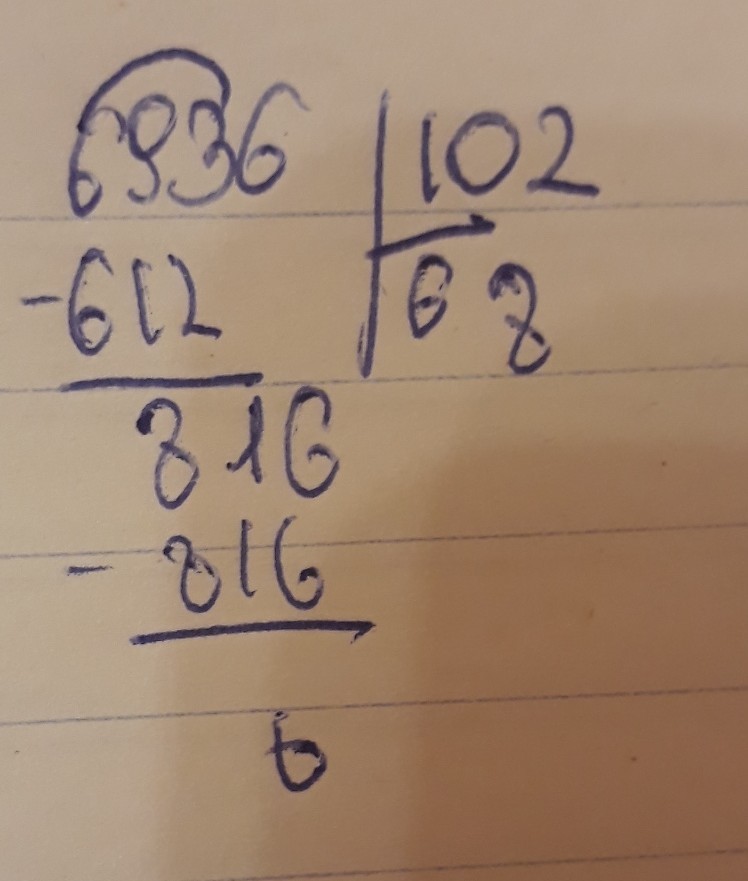 6936 102
-612 68
816
- 816
0